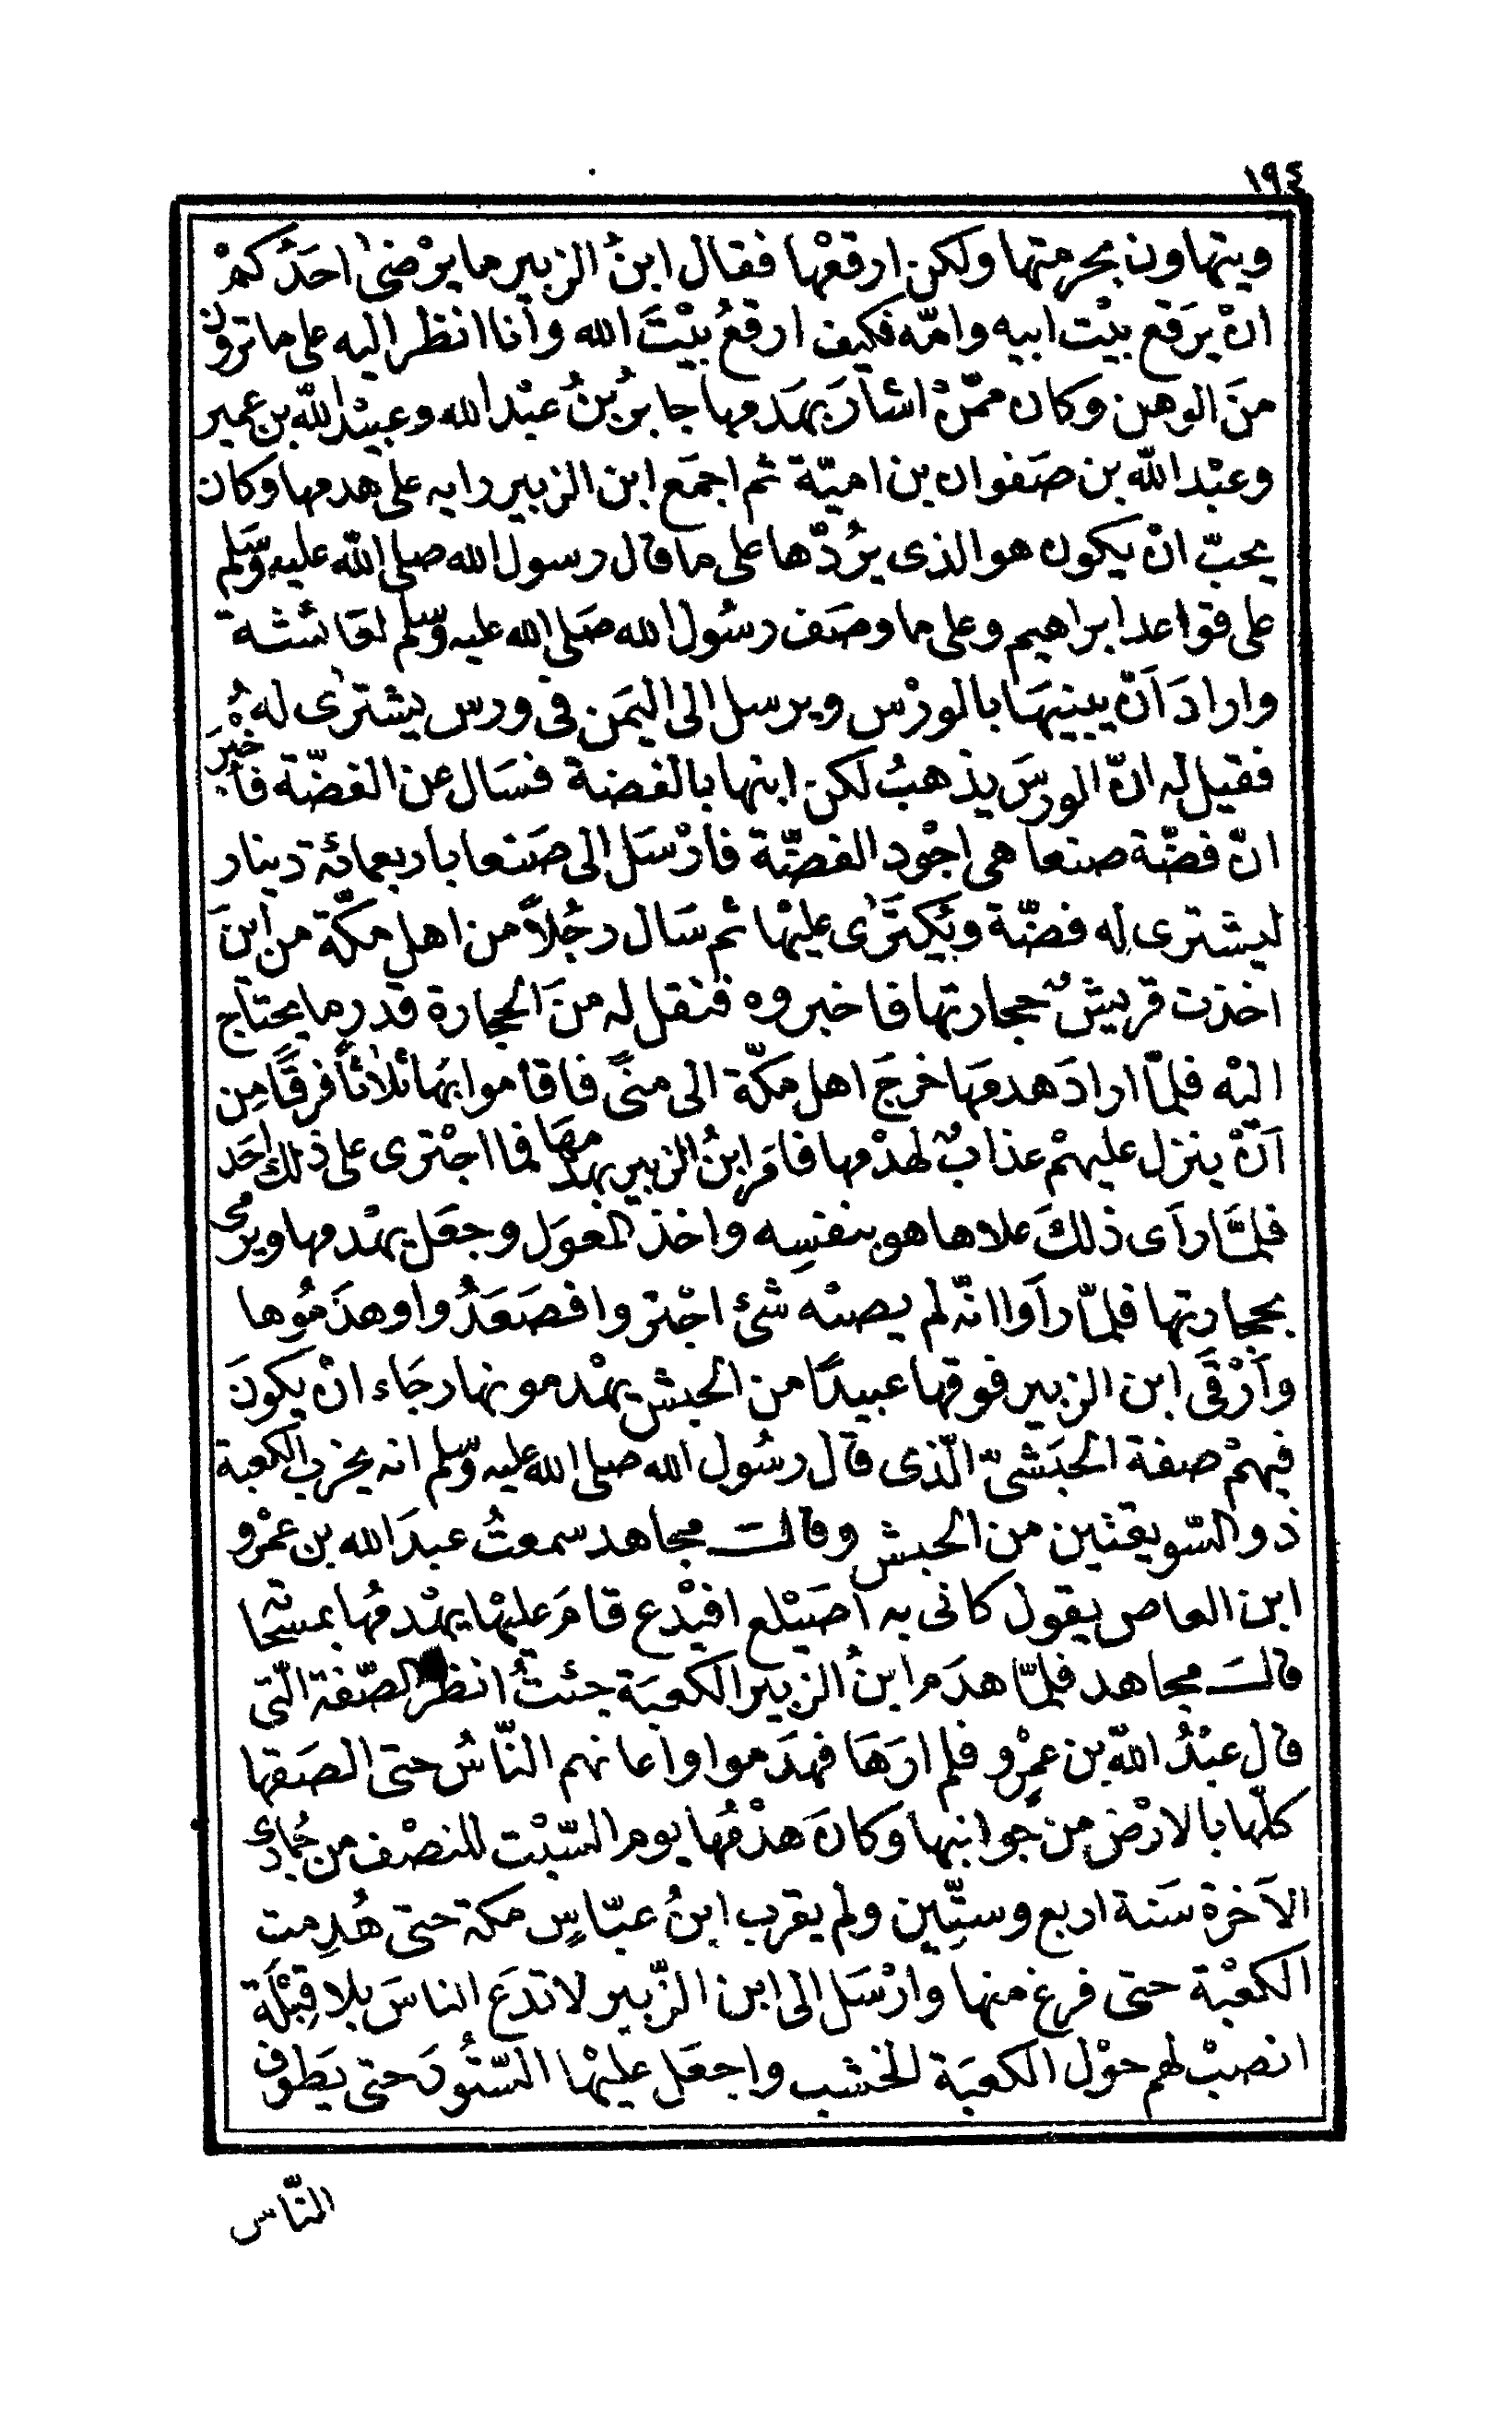 ١٩٤
ويتهاون بحرمتها ولكن ارقعْها فقال ابنُ الزبير ما يرْضىٰ احَدُكمْ
انْ يرَقع بيْت ابيه وامّه فكيف ارقعُ بيْتَ الله وانا انظر اليه على ما ترون
منَ الوهن وكان ممّنْ اشارَ بهَدمها جابرُ بنُ عبْد الله وعبيْد اللّه بن عمير
وعبْد اللّه بن صَفوان بن اميّة ثم اجمَع ابن الزبير رايه على هدمها وكان
يحبّ انْ يكون هو الذى يرُدّها على ما قال رسول الله صلى اللّه عليه وسَّلم
على قواعد ابراهيم وعلى ما وصَف رسُول الله صَلى الله عليه وسّلم لعَائشة
وارادَ اَنْ يبنيهَا بالورْس ويرسل الى اليَمن فى ورس يشترىٰ لهُ
فقيل له انّ الورسَ يذهبُ لكن ابنها بالفضة فسَال عن الفضّة فاُخْبرَ
انّ فضّة صنعا هى اجْود الفضّة فارْسَل الى صَنعا باربعمائة دينار
ليشترى له فضّة ويُكتَرٰى عليْها ثم سَال رجُلاً من اهل مكّة من اينَ
اخذت قريشٌ حجارتها فاخبروه فنقل له منَ الحجارة قدر ما يحتاج
اليْه فلمّا ارادَ هدمَها خرجَ اهل مكّة الى منىً فاقاموا بهَا ثلاثاً فرقًا مِن
اَنْ ينزل عليهمْ عذابٌ لهدْمها فامَر ابنُ الزبير بهدْمهَا فما اجْترى على ذلك احَد
فلمَّا راَى ذلكَ علاها هو بنفسِه واخذ المعوَل وجعَل يهْدمها ويرمى
بحجارتها فلمّا راَوا انّه لم يصبْه شئ اجْتروا فصَعَدُوا وهدَمُوها
واَرْقَى ابن الزبير فوقها عبيدًا من الحبش يهْدمونها رجَاء انْ يكونَ
فيهمْ صفة الحبَشىّ الّذى قال رسُول الله صلى الله عليه وسّلم انه يخرب الكعبة
ذو السّويقتين من الحبش وقالـــَ مجاهد سمعتُ عبدَ الله بن عمْرو
ابن العاص يقول كانى به اصَيْلع افيْدع قامَ عليْها يهْدمُها بمسْحاته
قالـــَ مجاهد فلمّا هدَم ابنُ الزبير الكعبَة جئتُ انظر الصّفة الّتى
قال عبْدُ اللّه بن عمْرٍو فلم ارَهَا فهدَموا واعانهم النّاسُ حتى الصَقها
كلّها بالارْض من جوانبها وكانَ هدْمُها يوم السّبْت للنصْف من جُمادى
الاَخرة سَنة اربع وستِّين ولم يقرب ابنُ عبّاسٍ مكة حتى هُدِمت
الكعْبة حتى فرغ منها وارْسَل الى ابن الزّبير لا تدَع الناسَ بلا قِبْلَة
انصبْ لهم حوْل الكعبَة الخشب واجعَل عليْها السّتُورَ حتى يَطوف
النّاس